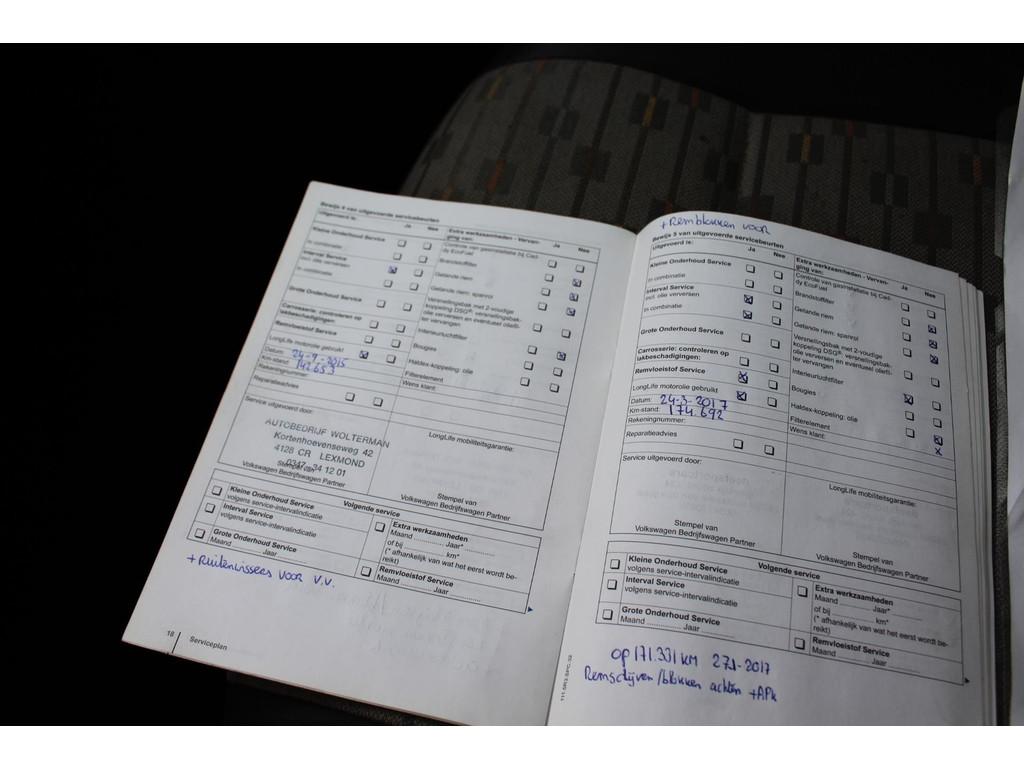 Bewijs 4 van uitgevoerde servicebeurten
Uitgevoerd is:
Ja Nee
Kleine Onderhoud Service
In combinatie :
Interval Service
incl. olie verversen
In combinatie
Grote Onderhoud Service
Carrosserie: controleren op
lakbeschadigingen:
Remvloeistof Service
LongLife motorolie gebruikt
Datum: 24-9-2015
Km-stand: 142653
Rekeningnummer:
Reparatieadvies
Extra werkzaamheden - Vervan-
ging van:
Ja Nee
Controle van gasinstallatie bij Cad-
dy EcoFuel
Brandstoffilter
Getande riem
Getande riem: spanrol
Versnellingsbak met 2-voudige
koppeling DSG®: versnellingsbak-
olie verversen en eventueel oliefil-
ter vervangen
Interieurluchtfilter
Bougies
Haldex-koppeling: olie
Filterelement
Wens klant:
Service uitgevoerd door:
AUTOBEDRIJF WOLTERMAN
Kortenhoevenseweg 42
4128 CR LEXMOND
0347 - 34 12 01
Stempel van
Volkswagen Bedrijfswagen Partner
LongLife mobiliteitsgarantie:
Stempel van
Volkswagen Bedrijfswagen Partner
Volgende service
Kleine Onderhoud Service
volgens service-intervalindicatie
Interval Service
volgens service-intervalindicatie
Grote Onderhoud Service
Maand ............ Jaar ............
Extra werkzaamheden
Maand ............ Jaar* ............
of bij ............ km*
(* afhankelijk van wat het eerst wordt be-
reikt)
Remvloeistof Service
Maand ............ Jaar ............
+ Ruitenwissers voor V.V.
18 Serviceplan
+ Remblokken voor
Bewijs 5 van uitgevoerde servicebeurten
Uitgevoerd is:
Ja Nee
Kleine Onderhoud Service
In combinatie
Interval Service
incl. olie verversen
In combinatie
Grote Onderhoud Service
Carrosserie: controleren op
lakbeschadigingen:
Remvloeistof Service
LongLife motorolie gebruikt
Datum: 24-3-2017
Km-stand: 174.692
Rekeningnummer:
Reparatieadvies
Extra werkzaamheden - Vervan-
ging van:
Ja Nee
Controle van gasinstallatie bij Cad-
dy EcoFuel
Brandstoffilter
Getande riem
Getande riem: spanrol
Versnellingsbak met 2-voudige
koppeling DSG®: versnellingsbak-
olie verversen en eventueel oliefil-
ter vervangen
Interieurluchtfilter
Bougies
Haldex-koppeling: olie
Filterelement
Wens klant:
Service uitgevoerd door:
Stempel van
Volkswagen Bedrijfswagen Partner
LongLife mobiliteitsgarantie:
Stempel van
Volkswagen Bedrijfswagen Partner
Volgende service
Kleine Onderhoud Service
volgens service-intervalindicatie
Interval Service
volgens service-intervalindicatie
Grote Onderhoud Service
Maand ............ Jaar ............
Extra werkzaamheden
Maand ............ Jaar* ............
of bij ............ km*
(* afhankelijk van wat het eerst wordt be-
reikt)
Remvloeistof Service
Maand ............ Jaar ............
op 171.331 KM 27-1-2017
Remschijven/blokken achter +APK